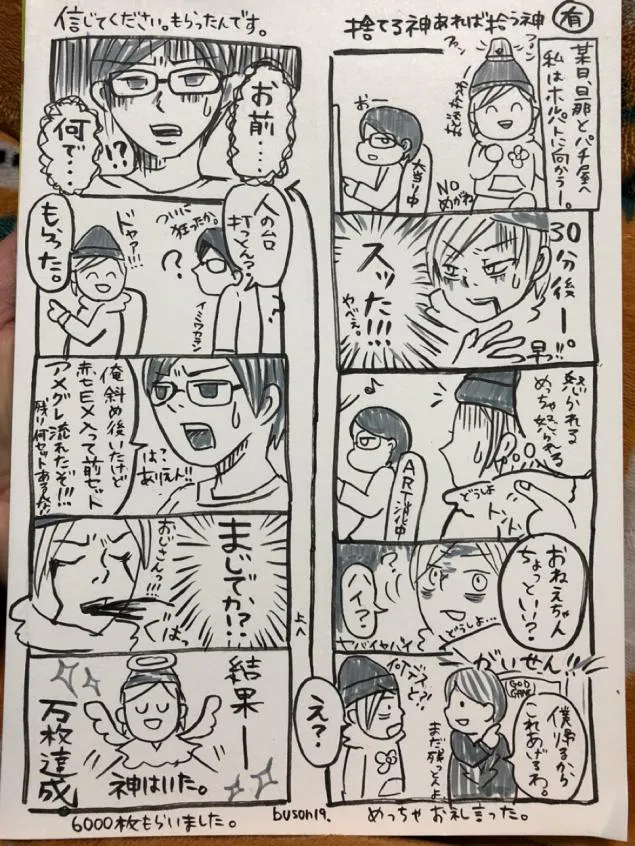 捨てる神あれば拾う神
有
某日、旦那とパチ屋へ
私はホルパトに向かうー。
ファン
ファン
お
大当り中
NO
めがね
30分後ー。
早っ!!
スッた!!!
やべぇ。
怒られる
めちゃ怒られる
どうしよ
トントン
♪
ART消化中
おねえちゃん
ちょっといい?
ハイ?
どうしよ…
ヤバイヤバイ
がいせん!!
GOD
GAME
僕帰るから
これあげるわ。
まだ残っとんよ
え?
めっちゃお礼言った。
信じてください。もらったんです。
お前…
何で…
!?
人の台
打っとん?
ついに
狂ったか。
?
イミワカラン
ドヤァ!!!
もらった。
俺斜め後いたけど
赤七EX入って前セット
アメグレ流れたぞ!!!
残り何セットあるんな!!
は?
ありえん!!
まじでか!?
おじさんっ!!!
ぐはっ
上へ
結果ー
万枚達成
神はいた。
6000枚もらいました。
buson19.